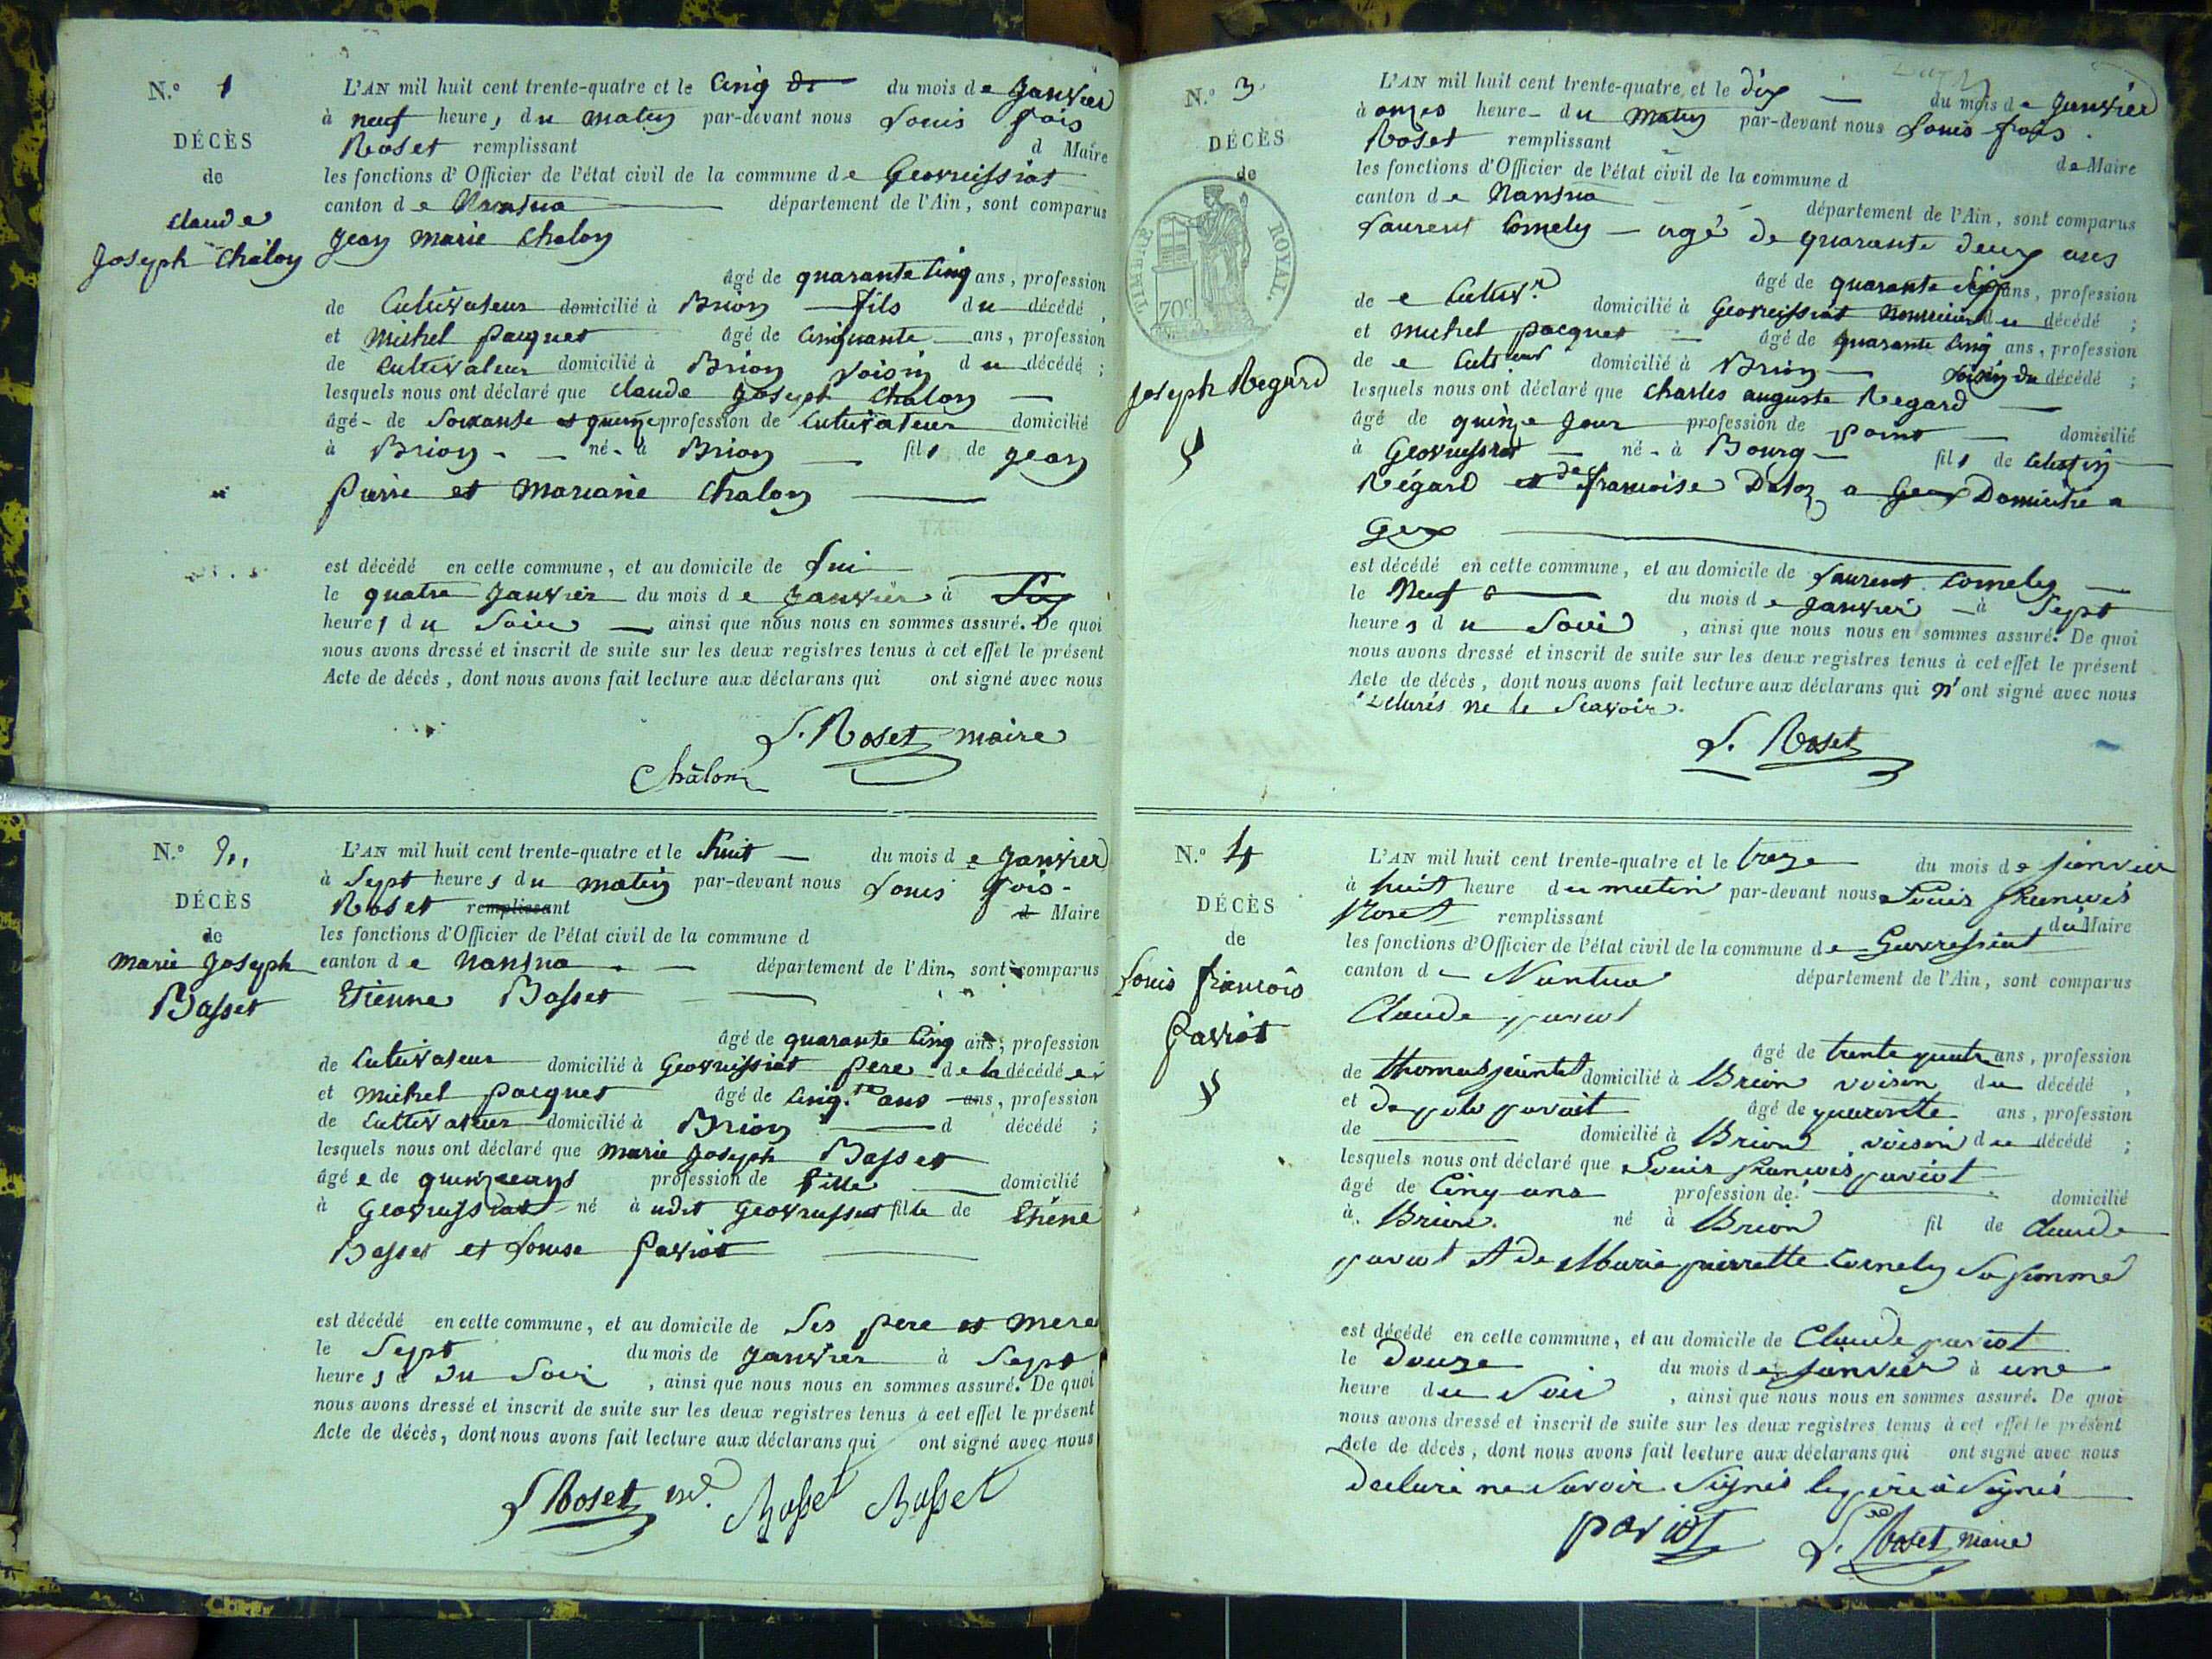 N.° 1
DÉCÈS
de
Claude
Joseph Chalon
L'AN mil huit cent trente-quatre et le Cinq du mois de Janvier
à neuf heures du matin par-devant nous Louis fois
Roset remplissant d Maire
les fonctions d'Officier de l'état civil de la commune de Geovreissiat
canton de Nantua département de l'Ain, sont comparus
Jean Marie Chalon
âgé de quarante Cinq ans, profession
de Cultivateur domicilié à Brion fils du décédé,
et Michel pacquet âgé de Cinquante ans, profession
de Cultivateur domicilié à Brion voisin du décédé;
lesquels nous ont déclaré que Claude Joseph Chalon
âgé de Soixante et quinze profession de Cultivateur domicilié
à Brion né à Brion fils de Jean
Pierre et Mariane Chalon
est décédé en cette commune, et au domicile de Lui
le quatre Janvier du mois de Janvier à Six
heures du Soir ainsi que nous nous en sommes assuré. De quoi
nous avons dressé et inscrit de suite sur les deux registres tenus à cet effet le présent
Acte de décès, dont nous avons fait lecture aux déclarans qui ont signé avec nous
L. Roset maire
Châlon
N.° 2
DÉCÈS
de
Marie Joseph
Basset
L'AN mil huit cent trente-quatre et le huit du mois de Janvier
à Sept heures du matin par-devant nous Louis fois
Roset remplissant d Maire
les fonctions d'Officier de l'état civil de la commune d
canton de Nantua département de l'Ain, sont comparus
Etienne Basset
âgé de quarante Cinq ans, profession
de Cultivateur domicilié à Geovreissiat pere de la décédée
et Michel pacquet âgé de Cinq.te ans ans, profession
de Cultivateur domicilié à Brion d décédé;
lesquels nous ont déclaré que Marie Joseph Basset
âgée de quinze ans profession de fille domicilié
à Geovreissiat né à udit Geovreissiat fille de Etiene
Basset et Louise Paviot
est décédé en cette commune, et au domicile de Ses pere et mere
le Sept du mois de Janvier à Sept
heures d du Soir, ainsi que nous nous en sommes assuré. De quoi
nous avons dressé et inscrit de suite sur les deux registres tenus à cet effet le présent
Acte de décès, dont nous avons fait lecture aux déclarans qui ont signé avec nous
L Roset Basset Basset
N.° 3
DÉCÈS
de
TIMBRE ROYAL.
70c
Joseph Regard
L'AN mil huit cent trente-quatre et le dix du mois de Janvier
à onzes heure du matin par-devant nous Louis fois
Roset remplissant de Maire
les fonctions d'Officier de l'état civil de la commune d
canton de Nantua département de l'Ain, sont comparus
Laurent Cornely agé de quarante deux ans
âgé de quarante Six ans, profession
de e Cultiv.r domicilié à Geovreissiat Nourricier du décédé;
et Michel pacquet âgé de quarante Cinq ans, profession
de e Cult.eur domicilié à Brion voisin du décédé;
lesquels nous ont déclaré que Charles auguste Regard
âgé de quinze Jour profession de point domicilié
à Geovreissiat né à Bourg fils de Celestin
Régard et de francoise Daloz a Gex Domicilié a
Gex
est décédé en cette commune, et au domicile de Laurent Cornely
le Neuf du mois de Janvier à Sept
heures du Soir, ainsi que nous nous en sommes assuré. De quoi
nous avons dressé et inscrit de suite sur les deux registres tenus à cet effet le présent
Acte de décès, dont nous avons fait lecture aux déclarans qui n'ont signé avec nous
ne le Scavoir.
L. Roset
N.° 4
DÉCÈS
de
Louis francois
Paviot
L'AN mil huit cent trente-quatre et le treze du mois de janvier
à huit heure du matin par-devant nous Louis francois
Roset remplissant du Maire
les fonctions d'Officier de l'état civil de la commune de Gevressiat
canton de Nantua département de l'Ain, sont comparus
Claude paviot
âgé de trente quatre ans, profession
de domicilié à Brion voison du décédé,
et paviot âgé de quarente ans, profession
de domicilié à Brion voison du décédé;
lesquels nous ont déclaré que Louis francois paviot
âgé de Cinq ans profession de domicilié
à Brion né à Brion fil de claude
paviot et de Marie pierrette Cornely sa femme
est décédé en cette commune, et au domicile de Claude paviot
le douze du mois de janvier à une
heure du soir, ainsi que nous nous en sommes assuré. De quoi
nous avons dressé et inscrit de suite sur les deux registres tenus à cet effet le présent
Acte de décès, dont nous avons fait lecture aux déclarans qui ont signé avec nous
declaré ne savoir signés le père a signés
paviot L. Roset maire